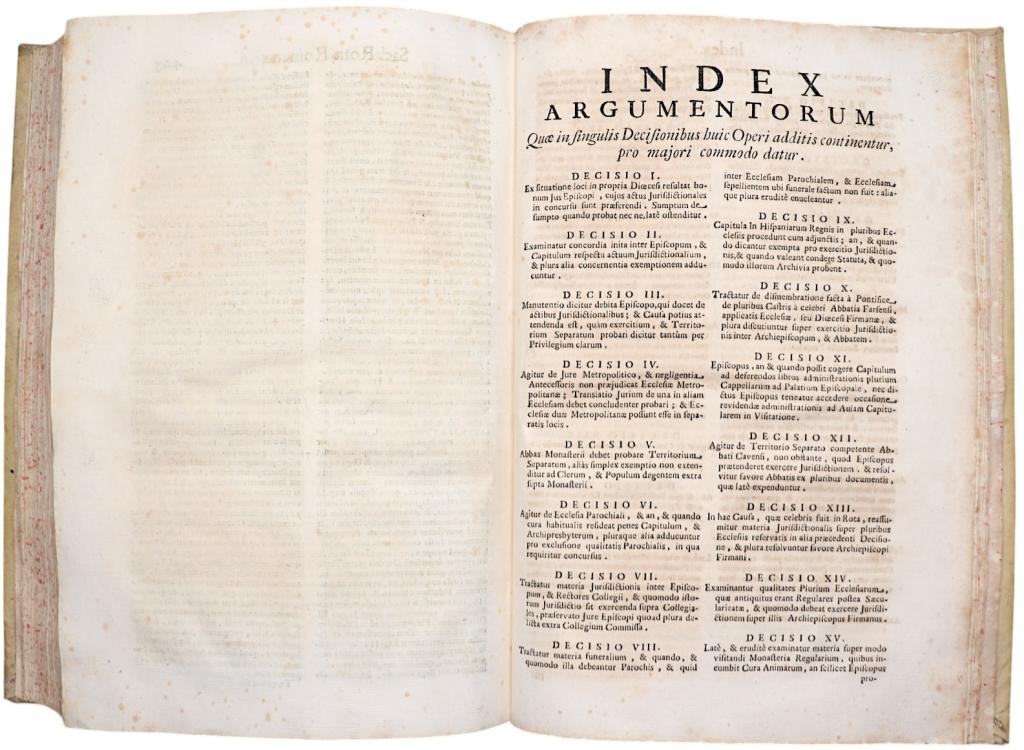 INDEX
ARGUMENTORUM
Quæ in singulis Decisionibus huic Operi additis continentur,
pro majori commodo datur.
DECISIO I.
Ex situatione loci in propria Diœcesi resultat bo-
num Jus Episcopi, cujus actus Jurisdictionales
in concursu sunt præferendi. Sumptum de
sumpto quando probat nec ne, latè ostenditur.
DECISIO II.
Examinatur concordia inita inter Episcopum, &
Capitulum respectu actuum Jurisdictionalium,
& plura alia concernentia exemptionem addu-
cuntur.
DECISIO III.
Manutentio dicitur debita Episcopo, qui docet de
actibus Jurisdictionalibus; & Causa potius at-
tendenda est, quàm exercitium, & Territo-
rium Separatum probari dicitur tantùm per
Privilegium clarum.
DECISIO IV.
Agitur de Jure Metropolitico, & negligentia
Antecessoris non præjudicat Ecclesiæ Metro-
politanæ; Translatio Jurium de una in aliam
Ecclesiam debet concludenter probari; & Ec-
clesiæ duæ Metropolitanæ possunt esse in sepa-
ratis locis.
DECISIO V.
Abbas Monasterii debet probare Territorium
Separatum, aliàs simplex exemptio non exten-
ditur ad Clerum, & Populum degentem extra
septa Monasterii.
DECISIO VI.
Agitur de Ecclesia Parochiali, & an, & quando
cura habitualis resideat penes Capitulum, &
Archipresbyterum, pluraque alia adducuntur
pro exclusione qualitatis Parochialis, in qua
requiritur concursus.
DECISIO VII.
Tractatur materia Jurisdictionis inter Episco-
pum, & Rectores Collegii, & quomodo isto-
rum Jurisdictio sit exercenda supra Collegia-
les, præservato Jure Episcopi quoad plura de-
licta extra Collegium Commissa.
DECISIO VIII.
Tractatur materia funeralium, & quando, &
quomodo illa debeantur Parochis, & quid
inter Ecclesiam Parochialem, & Ecclesiam
sepellientem ubi funerale factum non fuit: alia-
que plura eruditè enucleantur.
DECISIO IX.
Capitula In Hispaniarum Regnis in pluribus Ec-
clesiis procedunt cum adjunctis; an, & quan-
do dicantur exempta pro exercitio Jurisdictio-
nis, & quando valeant condere Statuta, & quo-
modo illorum Archivia probent.
DECISIO X.
Tractatur de dismembratione facta à Pontifice
de pluribus Castris à celebri Abbatia Farfensi,
applicatis Ecclesiæ, seu Diœcesi Firmanæ, &
plura discutiuntur super exercitio Jurisdictio-
nis inter Archiepiscopum, & Abbatem.
DECISIO XI.
Episcopus, an & quando possit cogere Capitulum
ad deferendos libros administrationis plurium
Cappellarum ad Palatium Episcopale, nec di-
ctus Episcopus teneatur accedere occasione
revidendæ administrationis ad Aulam Capitu-
larem in Visitatione.
DECISIO XII.
Agitur de Territorio Separato competente Ab-
bati Cavensi, non obstante, quod Episcopus
prætenderet exercere Jurisdictionem, & resol-
vitur favore Abbatis ex pluribus documentis,
quæ latè expenduntur.
DECISIO XIII.
In hac Causa, quæ celebris fuit in Rota, reassu-
mitur materia Jurisdictionalis super pluribus
Ecclesiis reservatis in alia præcedenti Decisio-
ne, & plura resolvuntur favore Archiepiscopi
Firmani.
DECISIO XIV.
Examinantur qualitates Plurium Ecclesiarum,
quæ antiquitus erant Regulares postea Sæcu-
larizatæ, & quomodo debeat exercere Jurisdi-
ctionem super illis Archiepiscopus Firmanus.
DECISIO XV.
Latè, & eruditè examinatur materia super modo
visitandi Monasteria Regularium, quibus in-
cumbit Cura Animarum, an scilicet Episcopus
pro-